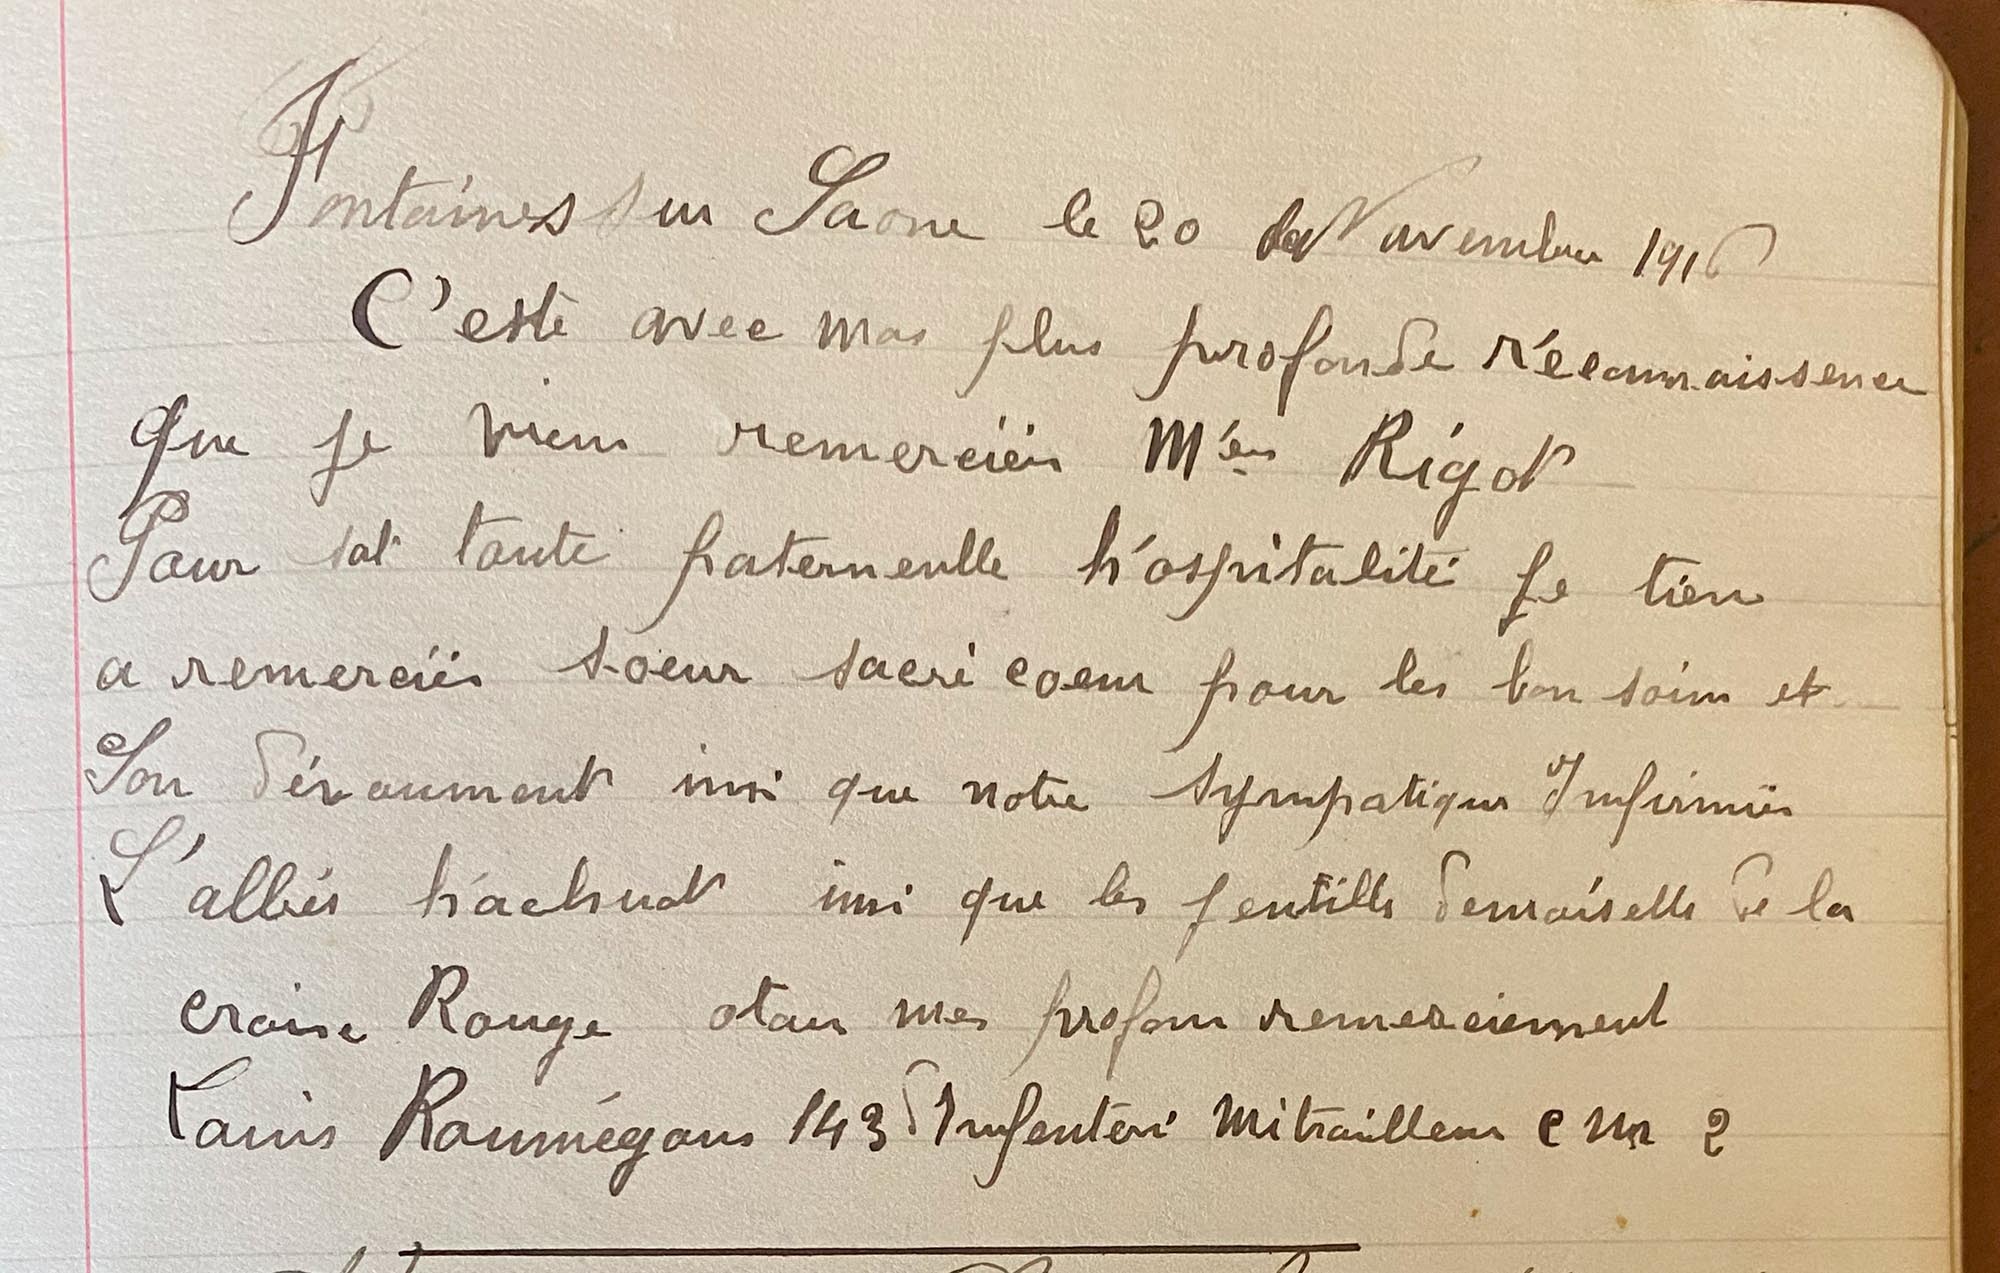 Fontaines sur Saone le 20 de Novembre 1916
C'este avec mas plus profonde réconnaissence
que je vien remerciér Mr Rigot
Pour sat toute paterneulle h'ospitalité je tien
a remerciér soeur sacré coeur pour les bon soim et
Son dévoument insi que notre sympatique Infirmiér
L'abbés insi que les jentills demoiselle de la
croise Rouge otau mes profon remerciement
Louis Roumégous 143 d'Infenteri Mitrailleur C M 2